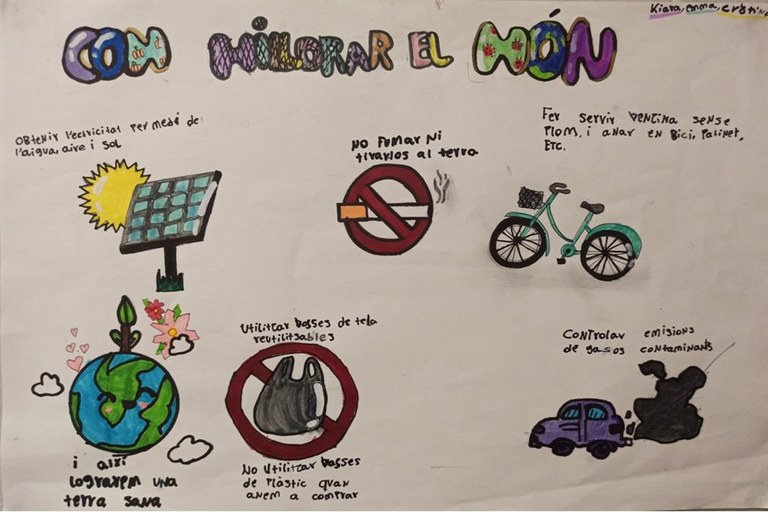 Kiara, emma, cristina
COM MILLORAR EL MÓN
Obtenir l'electricitat per medi de
l'aigua, aire i sol
NO FUMAR NI
tirarlos al terra
Fer servir bentina sense
Plom, i anar en Bici, Patinet,
Etc.
Utilitzar bosses de tela
reutilitsables
Controlar emisions
de gasos contaminans
i així
lograrem una
terra sana
No Utilitzar bosses
de Plàstic quan
anem a comprar